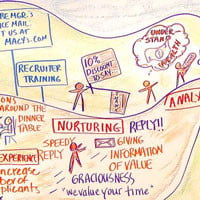 RE MGR.'S
CE MAIL
T US AT
MACY'S.COM
RECRUITER
TRAINING
10%
DISCOUNT
TODAY
UNDER
STAND
ANALY
ONS
AROUND THE
DINNER
TABLE
NURTURING
REPLY!!
SPEEDY
REPLY
GIVING
INFORMATION
OF VALUE
EXPERIENCE
INCREASE
BER OF
PLICANTS
GRACIOUSNESS
"we value your time"